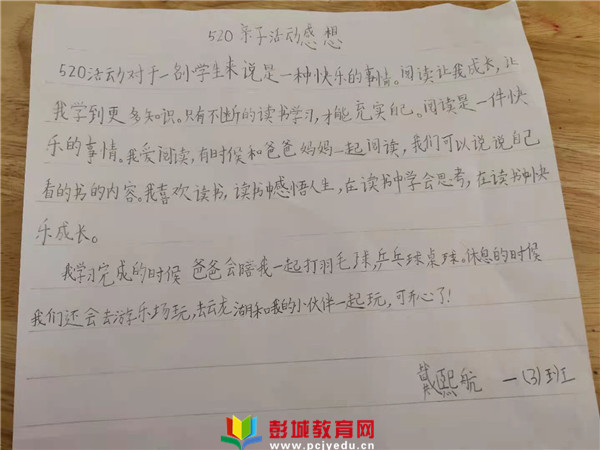 520亲子活动感想
520活动对于一名小学生来说是一种快乐的事情。阅读让我成长,让
我学到更多知识。只有不断的读书学习,才能充实自己。阅读是一件快
乐的事情。我爱阅读,有时候和爸爸妈妈一起阅读,我们可以说说自己
看的书的内容。我喜欢读书,读书中感悟人生,在读书中学会思考,在读书中快
乐成长。
我学习完成的时候 爸爸会陪我一起打羽毛球,乒乓球桌球。休息的时候
我们还会去游乐场玩,去云龙湖和我的小伙伴一起玩,可开心了!
戴熙航 一(3)班
彭城教育网
www.pcjyedu.cn